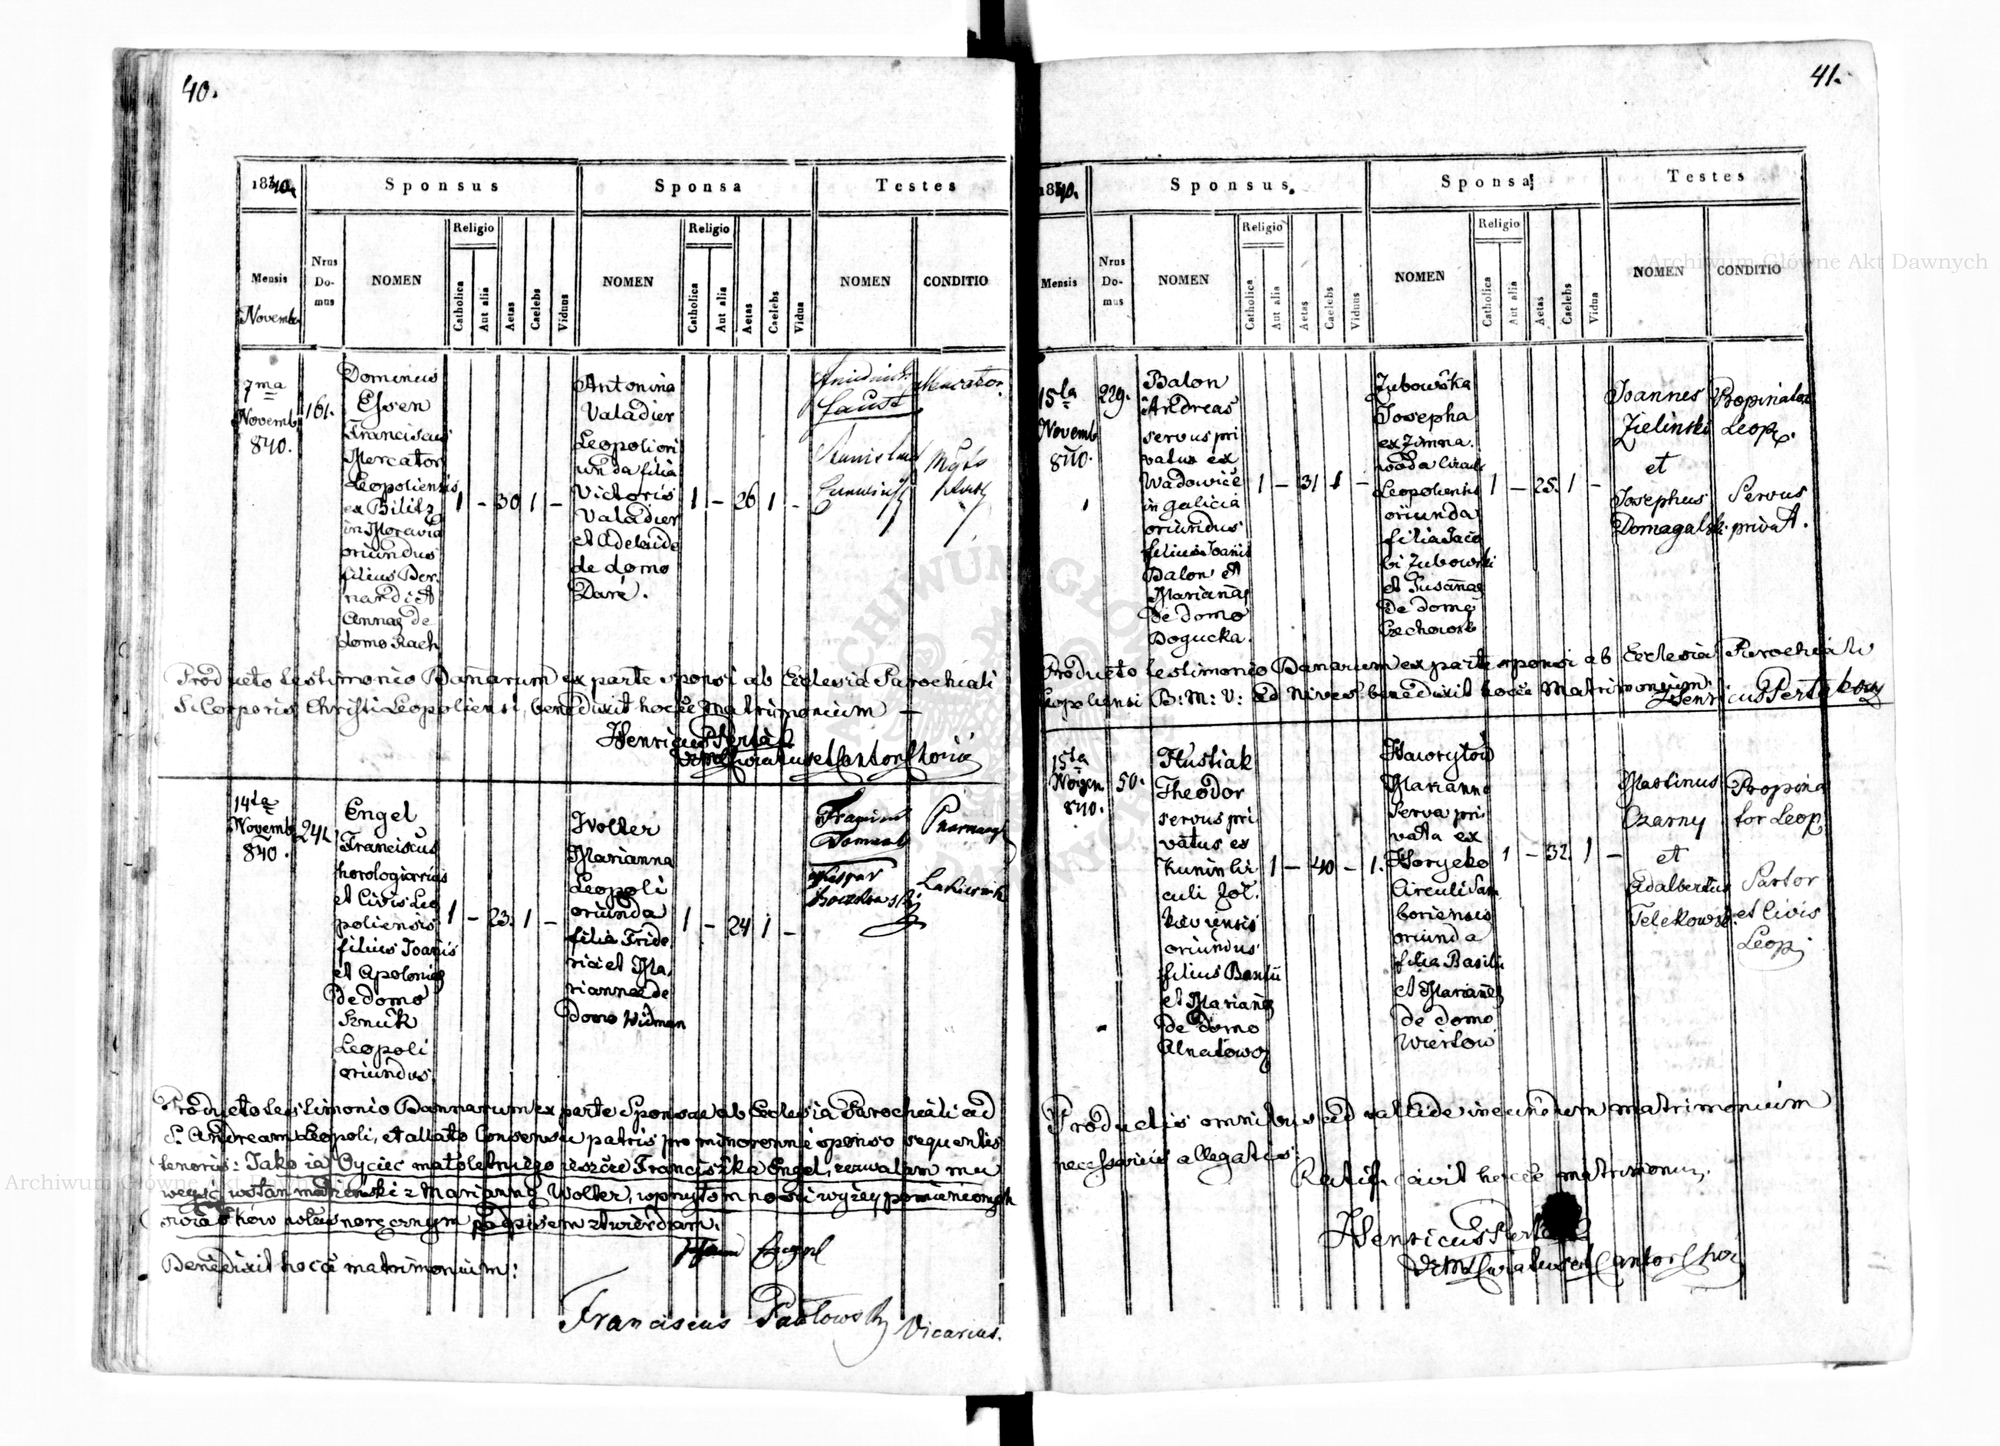 40.
1840.
Sponsus
Sponsa
Testes
Mensis
Novemb.
Nrus Do-mus
NOMEN
Religio
Catholica
Aut alia
Aetas
Caelebs
Viduus
NOMEN
Religio
Catholica
Aut alia
Aetas
Caelebs
Vidua
NOMEN
CONDITIO
7ma
Novemb
840.
161.
Dominus
Essen
Franciscus
Mercator
Leopoliensis
ex Bilitz
in Moravia
oriundus
filius Ber-
nardi et
Annae de
domo Rach
1 - 30 1 -
Antonina
Valadier
Leopoli ori
unda filia
Victoris
Valadier
et Adelaide
de domo
Daré.
1 - 26 1 -
Faust
Mercator.
Producto testimonio Bannarum ex parte sponsi ab Ecclesia Parochiali
S. Corporis Christi Leopoliensi, benedixit hocce matrimonium
Henricus
Curatus et Cantor Chori
14ta
Novemb
840.
241.
Engel
Franciscus
horologiarius
et Civis Leo
poliensis
filius Joanis
et Apolonia
De domo
Sznuk
Leopoli
oriundus
1 - 23. 1 -
Wolter
Marianna
Leopoli
oriunda
filia Fride
rici et Ma
riannae de
domo Widman
1 - 24 1 -
Producto testimonio Bannarum ex parte Sponsae ab Ecclesia Parochiali ad
S. Andream Leopoli, et allato Consensu patris pro minorenne sponso sequentis
tenoris: Jako ia Oyciec małoletniego ieszcze Franciszka Engel, zezwalam mu
weyść w stan małżeński z Marianną Wolter, w przytomności wyżey pomienionych
świadków własnoręcznym podpisem ztwierdzam.
Engel
Benedixit hocce matrimonium:
Franciscus Pawłowski Vicarius.
41.
1840.
Sponsus.
Sponsa
Testes
Mensis
Nrus Do-mus
NOMEN
Religio
Catholica
Aut alia
Aetas
Caelebs
Viduus
NOMEN
Religio
Catholica
Aut alia
Aetas
Caelebs
Vidua
NOMEN
CONDITIO
15ta
Novemb
840.
229.
Balon
Andreas
servus pri
vatus ex
Wadowice
in Galicia
oriundus
filius Joanis
Balon et
Marianae
De domo
Bogucka.
1 - 31 1 -
Zubowska
Josepha
ex Zimna
woda Circuli
Leopoliensis
oriunda
filia Jaco
bi Zubowski
et Susanae
De domo
1 - 25. 1 -
Joannes
Zielinski
et
Josephus
Domagalski
Propinator
Leop.
Servus
privat.
Producto testimonio Banarum ex parte sponsi ab Ecclesia Parochiali
Leopoliensi B: M: V: ad Nives benedixit hocce Matrimonium:
Henricus
15ta
Novem
840.
50.
Hustiak
Theodor
servus pri
vatus ex
Kunin Cir
culi Zoł.
kiewiensis
oriundus
filius Basilii
et Marianae
De domo
1 - 40 - 1.
Haworytow
Marianna
serva pri
vata ex
Circuli Sam
boriensis
oriunda
filia Basilii
et Mariane
de domo
Wierlow
1 - 32. 1 -
Martinus
Czarny
et
Adalbertus
Propina
tor Leop
Sartor
et Civis
Leop.
Productis omnibus ad valide ineundum matrimonium
necessariis allegatis
Ratificavit hocce matrimonium.
Henricus
Curatus et Cantor Chori
Archiwum Główne Akt Dawnych
Archiwum Główne Akt Dawnych